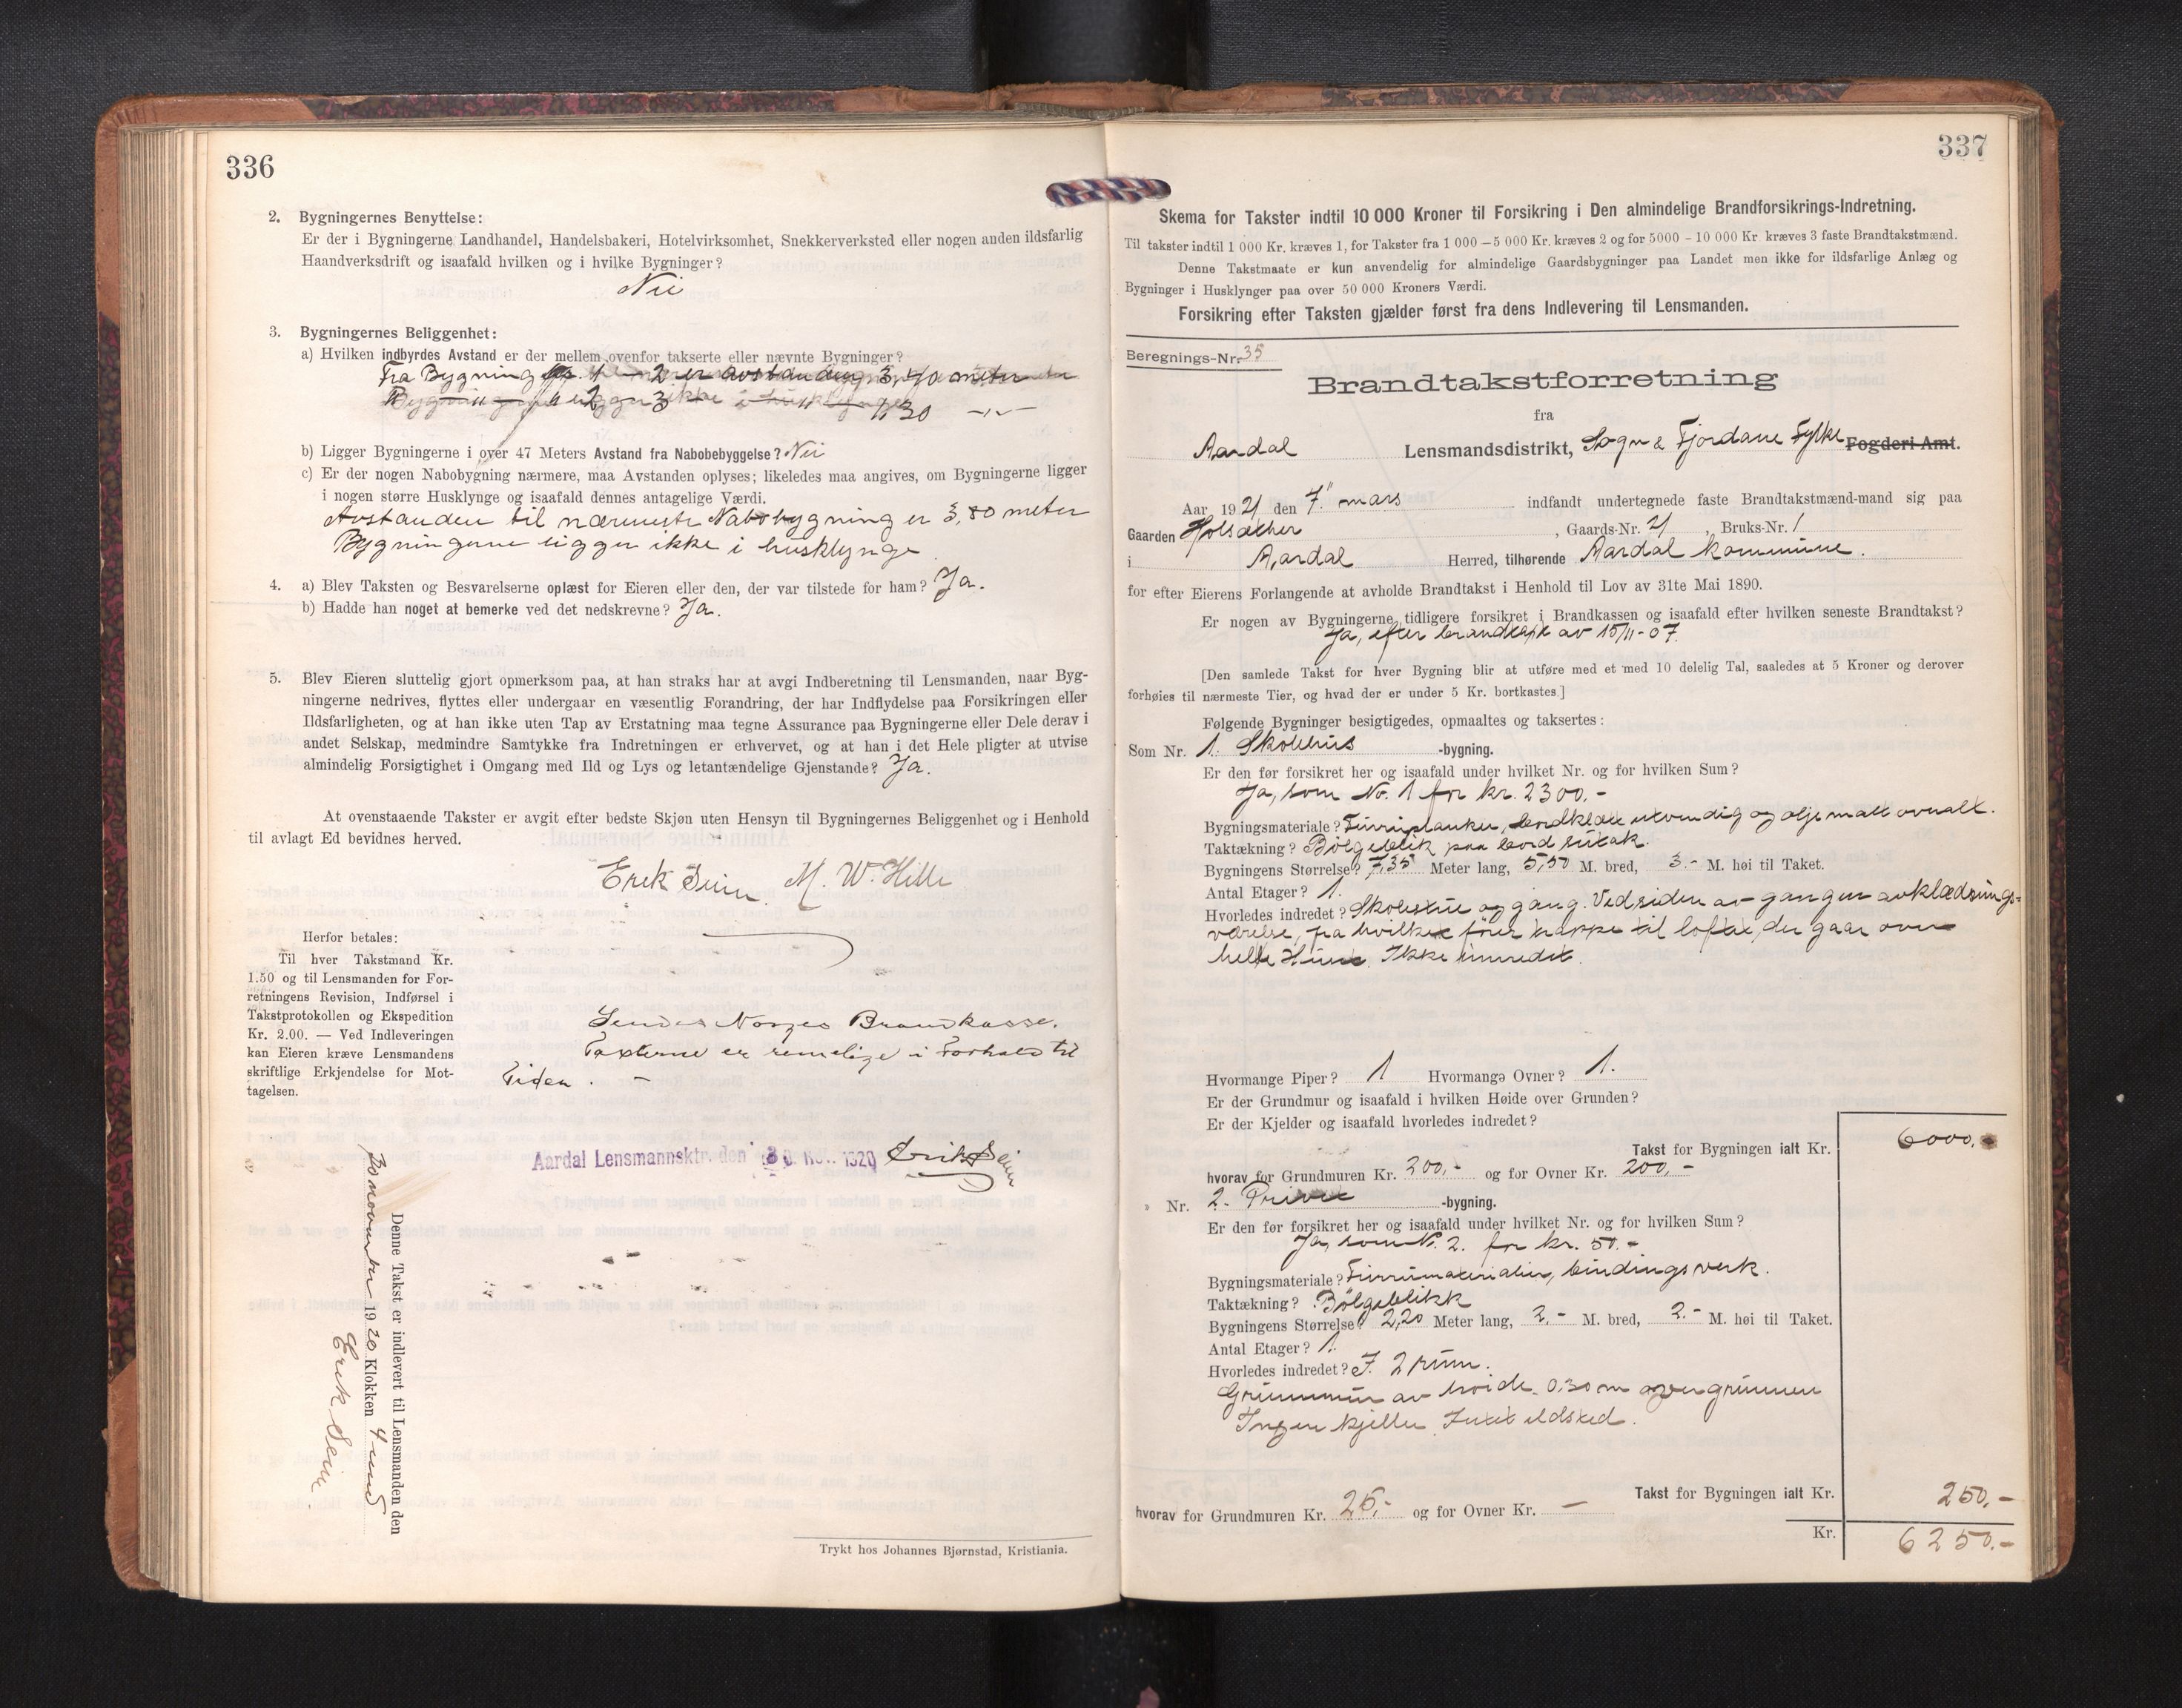 336
2. Bygningernes Benyttelse:
Er der i Bygningerne Landhandel, Handelsbakeri, Hotelvirksomhet, Snekkerverksted eller nogen anden ildsfarlig
Haandverksdrift og isaafald hvilken og i hvilke Bygninger?
Nei
3. Bygningernes Beliggenhet:
a) Hvilken indbyrdes Avstand er der mellem ovenfor takserte eller nævnte Bygninger?
Fra Bygning 1 – 2 er avstanden 3,40 meter
2 – 3
b) Ligger Bygningerne i over 47 Meters Avstand fra Nabobebyggelse? Nei
c) Er der nogen Nabobygning nærmere, maa Avstanden oplyses; likeledes maa angives, om Bygningerne ligger
i nogen større Husklynge og isaafald dennes antagelige Værdi.
Avstanden til nærmeste Nabobygning er 3,80 meter
Bygningerne ligger ikke i husklynge
4. a) Blev Taksten og Besvarelserne oplæst for Eieren eller den, der var tilstede for ham? Ja.
b) Hadde han noget at bemerke ved det nedskrevne? Ja.
5. Blev Eieren sluttelig gjort opmerksom paa, at han straks har at avgi Indberetning til Lensmanden, naar Byg-
ningerne nedrives, flyttes eller undergaar en væsentlig Forandring, der har Indflydelse paa Forsikringen eller
Ildsfarligheten, og at han ikke uten Tap av Erstatning maa tegne Assurance paa Bygningerne eller Dele derav i
andet Selskap, medmindre Samtykke fra Indretningen er erhvervet, og at han i det Hele pligter at utvise
almindelig Forsigtighet i Omgang med Ild og Lys og letantændelige Gjenstande? Ja.
At ovenstaaende Takster er avgit efter bedste Skjøn uten Hensyn til Bygningernes Beliggenhet og i Henhold
til avlagt Ed bevidnes herved.
Erik Seim. M. W. Hille
Herfor betales:
Til hver Takstmand Kr.
1.50 og til Lensmanden for For-
retningens Revision, Indførsel i
Takstprotokollen og Ekspedition
Kr. 2.00. — Ved Indleveringen
kan Eieren kræve Lensmandens
skriftlige Erkjendelse for Mot-
tagelsen.
Sendes Norges Brandkasse.
Taxterne er rimelige i Forhold til
Tiden. –
Aardal Lensmannsktr. den 30. Nov. 1920 Erik Seim
Denne Takst er indlevert til Lensmanden den
30 november 1920 Klokken 4 emd
Erik Seim
Trykt hos Johannes Bjørnstad, Kristiania.
337
Skema for Takster indtil 10 000 Kroner til Forsikring i Den almindelige Brandforsikrings-Indretning.
Til takster indtil 1 000 Kr. kræves 1, for Takster fra 1 000 – 5 000 Kr. kræves 2 og for 5000 – 10 000 Kr kræves 3 faste Brandtakstmænd.
Denne Takstmaate er kun anvendelig for almindelige Gaardsbygninger paa Landet men ikke for ildsfarlige Anlæg og
Bygninger i Husklynger paa over 50 000 Kroners Værdi.
Forsikring efter Taksten gjælder først fra dens Indlevering til Lensmanden.
Beregnings-Nr. 35
Brandtakstforretning
fra
Aardal Lensmandsdistrikt, Sogn & Fjordane Fylke Fogderi Amt.
Aar 1921 den 7. mars indfandt undertegnede faste Brandtakstmænd-mand sig paa
Gaarden Holsæther, Gaards-Nr. 21, Bruks-Nr. 1
i Aardal Herred, tilhørende Aardal kommune.
for efter Eierens Forlangende at avholde Brandtakst i Henhold til Lov av 31te Mai 1890.
Er nogen av Bygningerne tidligere forsikret i Brandkassen og isaafald efter hvilken seneste Brandtakst?
Ja, efter brandtakst av 15/11-07.
[Den samlede Takst for hver Bygning blir at utføre med et med 10 delelig Tal, saaledes at 5 Kroner og derover
forhøies til nærmeste Tier, og hvad der er under 5 Kr. bortkastes.]
Følgende Bygninger besigtigedes, opmaaltes og taksertes:
Som Nr. 1. Skolehus -bygning.
Er den før forsikret her og isaafald under hvilket Nr. og for hvilken Sum?
Ja, som No. 1 for kr. 2300.-
Bygningsmateriale? Furuplanker, bordklædt utvendig og oljemalt overalt.
Taktækning? Bølgeblik paa bord sutak.
Bygningens Størrelse? 7,35 Meter lang, 5,50 M. bred, 3.- M. høi til Taket.
Antal Etager? 1.
Hvorledes indredet? Skolestue og gang. Ved siden av gangen avklædnings-
værelse, fra hvilket fører trappe til loftet, der gaar over
hele Huset. Ikke innredet.
Hvormange Piper? 1 Hvormange Ovner? 1.
Er der Grundmur og isaafald i hvilken Høide over Grunden?
Er der Kjelder og isaafald hvorledes indredet?
Takst for Bygningen ialt Kr. 6000,-
hvorav for Grundmuren Kr. 200,- og for Ovner Kr. 200,-
Nr. 2. Privet -bygning.
Er den før forsikret her og isaafald under hvilket Nr. og for hvilken Sum?
Ja, som No. 2. for kr. 50.-
Bygningsmateriale? Furumaterialier, bindingsverk.
Taktækning? Bølgeblikk
Bygningens Størrelse? 2,20 Meter lang, 2.- M. bred, 2.- M. høi til Taket.
Antal Etager? 1.
Hvorledes indredet? I 2 rum.
Grunnmur av høide 0,30 m over grunnen
Ingen kjeller. Intet ildsted.
Takst for Bygningen ialt Kr. 250,-
hvorav for Grundmuren Kr. 25,- og for Ovner Kr. —
Kr. 6250.-